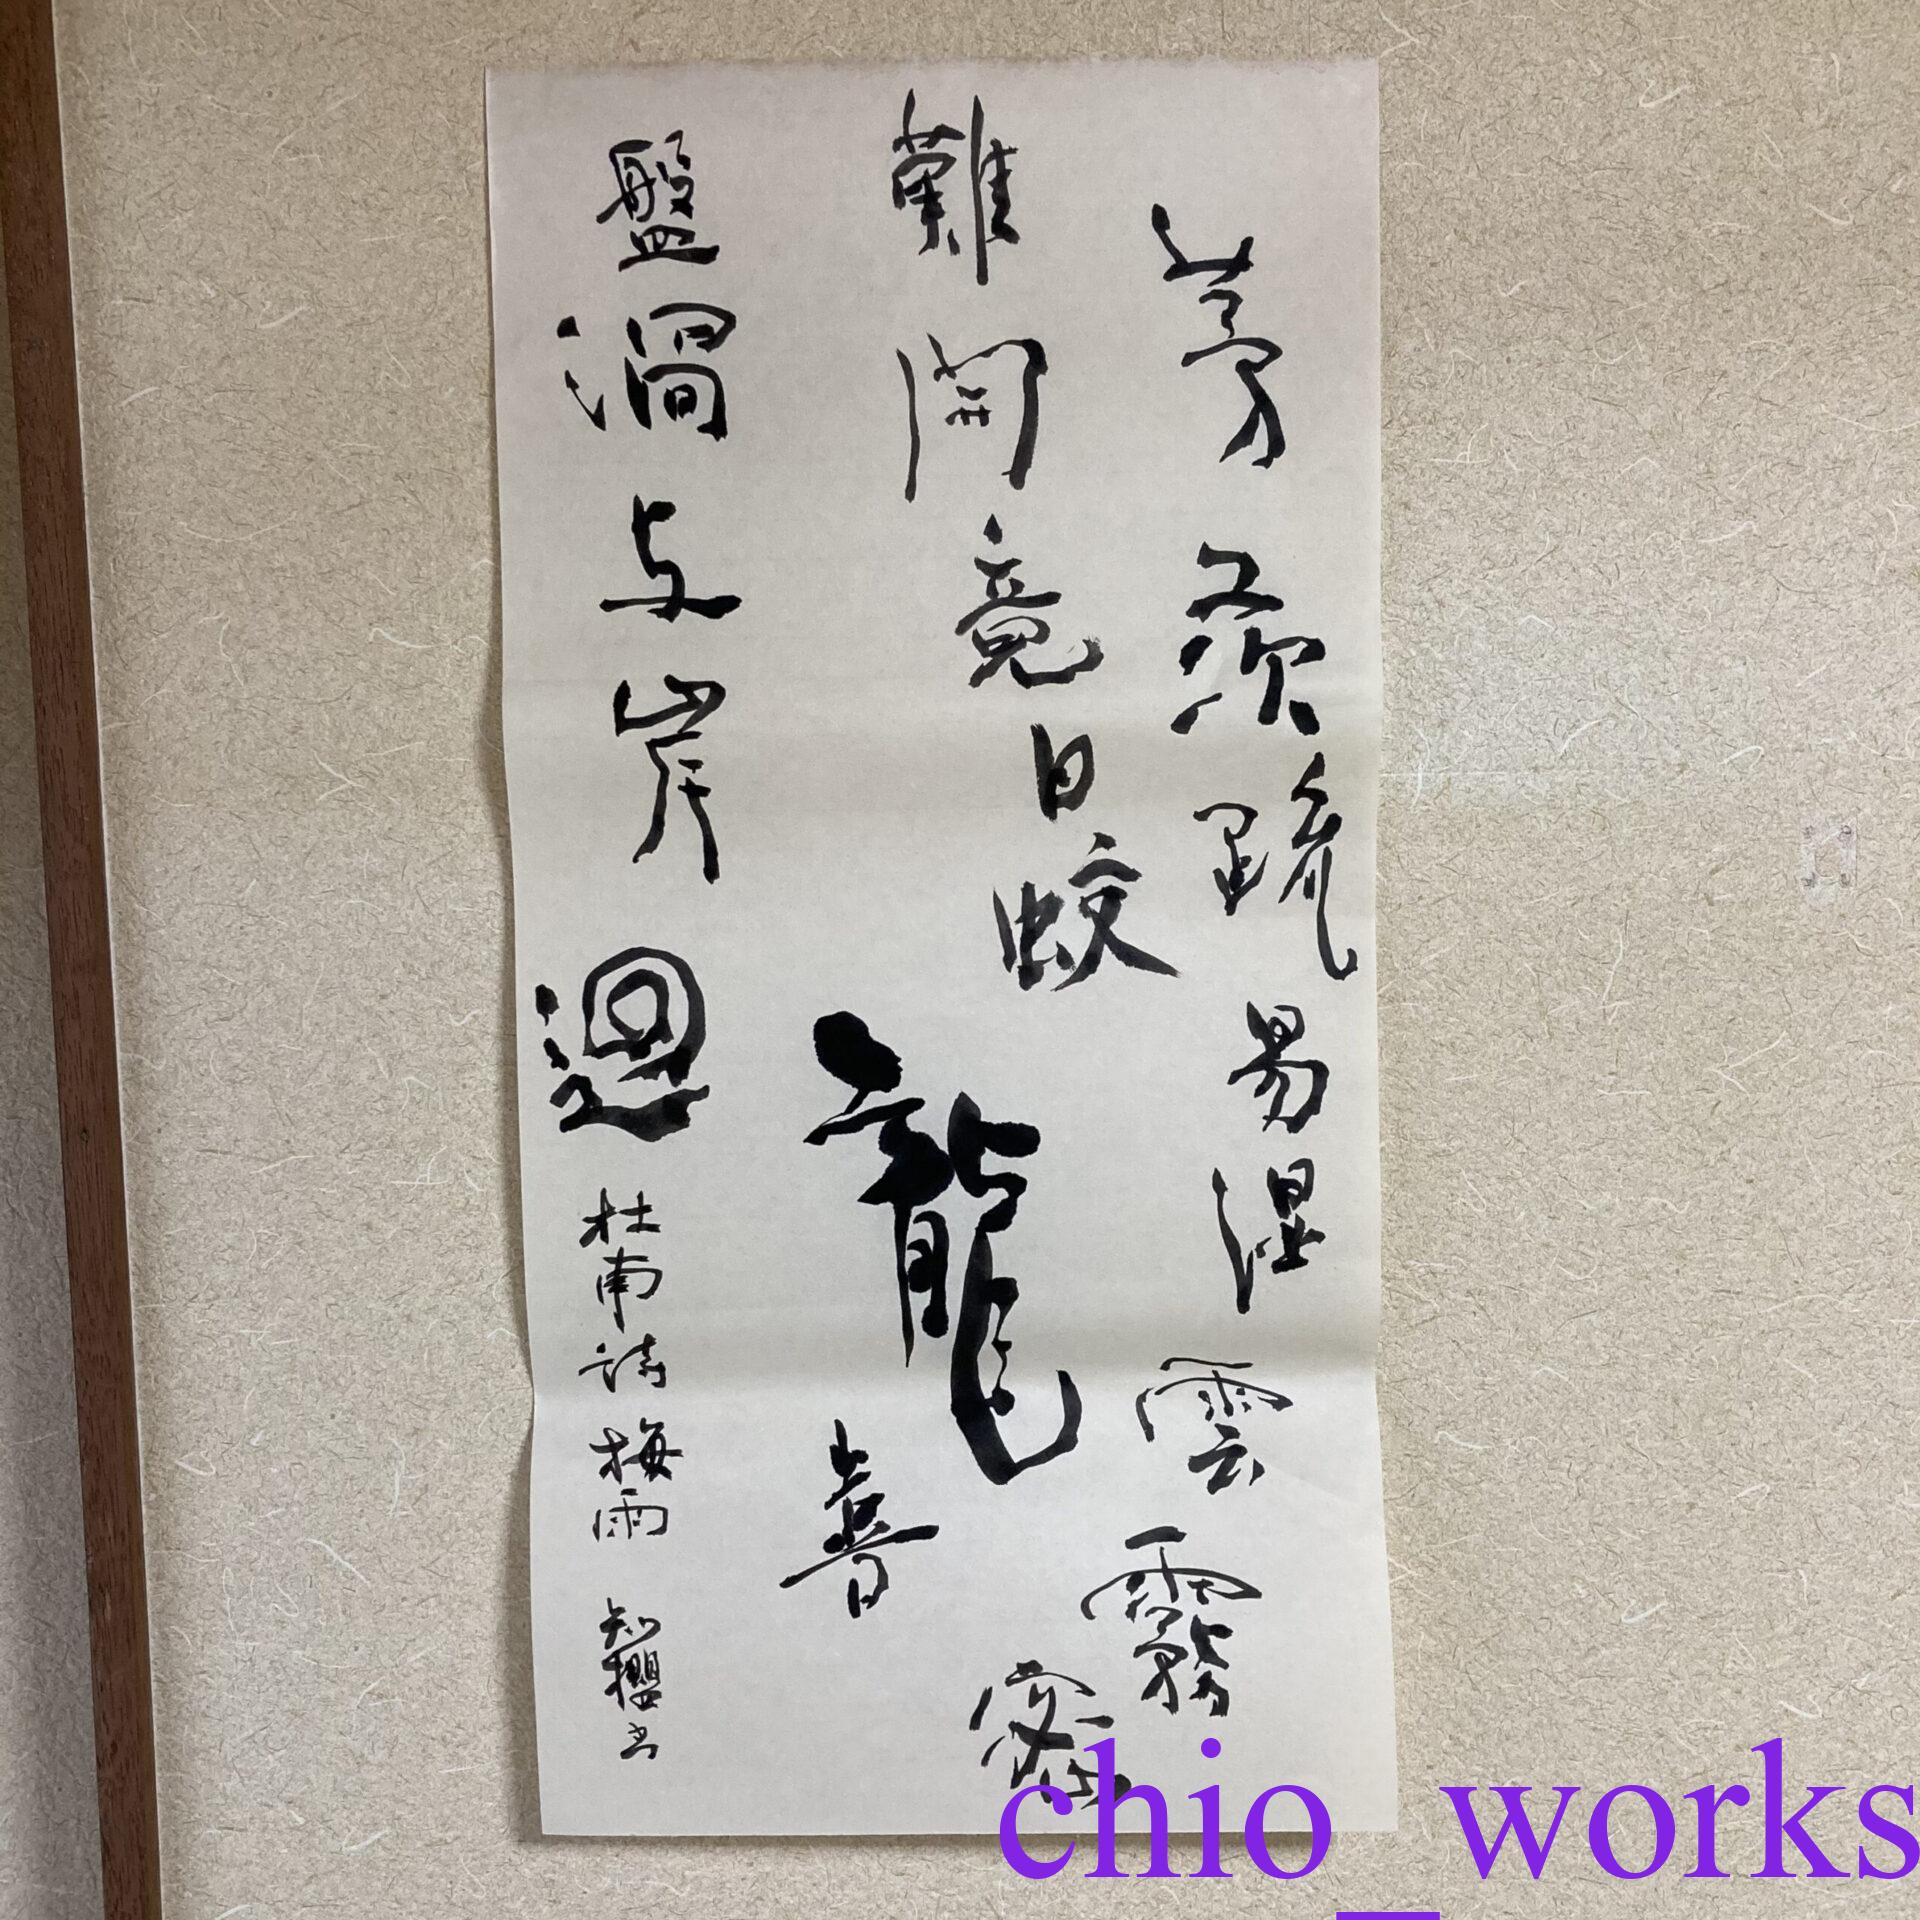 茅茨疏易湿雲霧密
難開竟日蛟龍喜
盤渦与岸迴
杜甫詩梅雨
知櫻书
chio_works